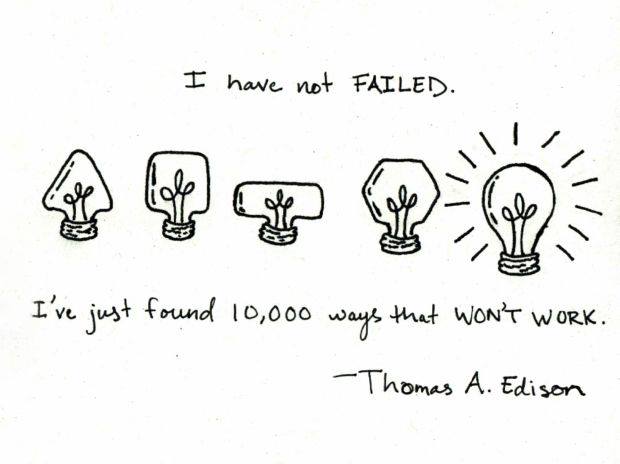 I have not FAILED.
I've just found 10,000 ways that WON'T WORK.
—Thomas A. Edison